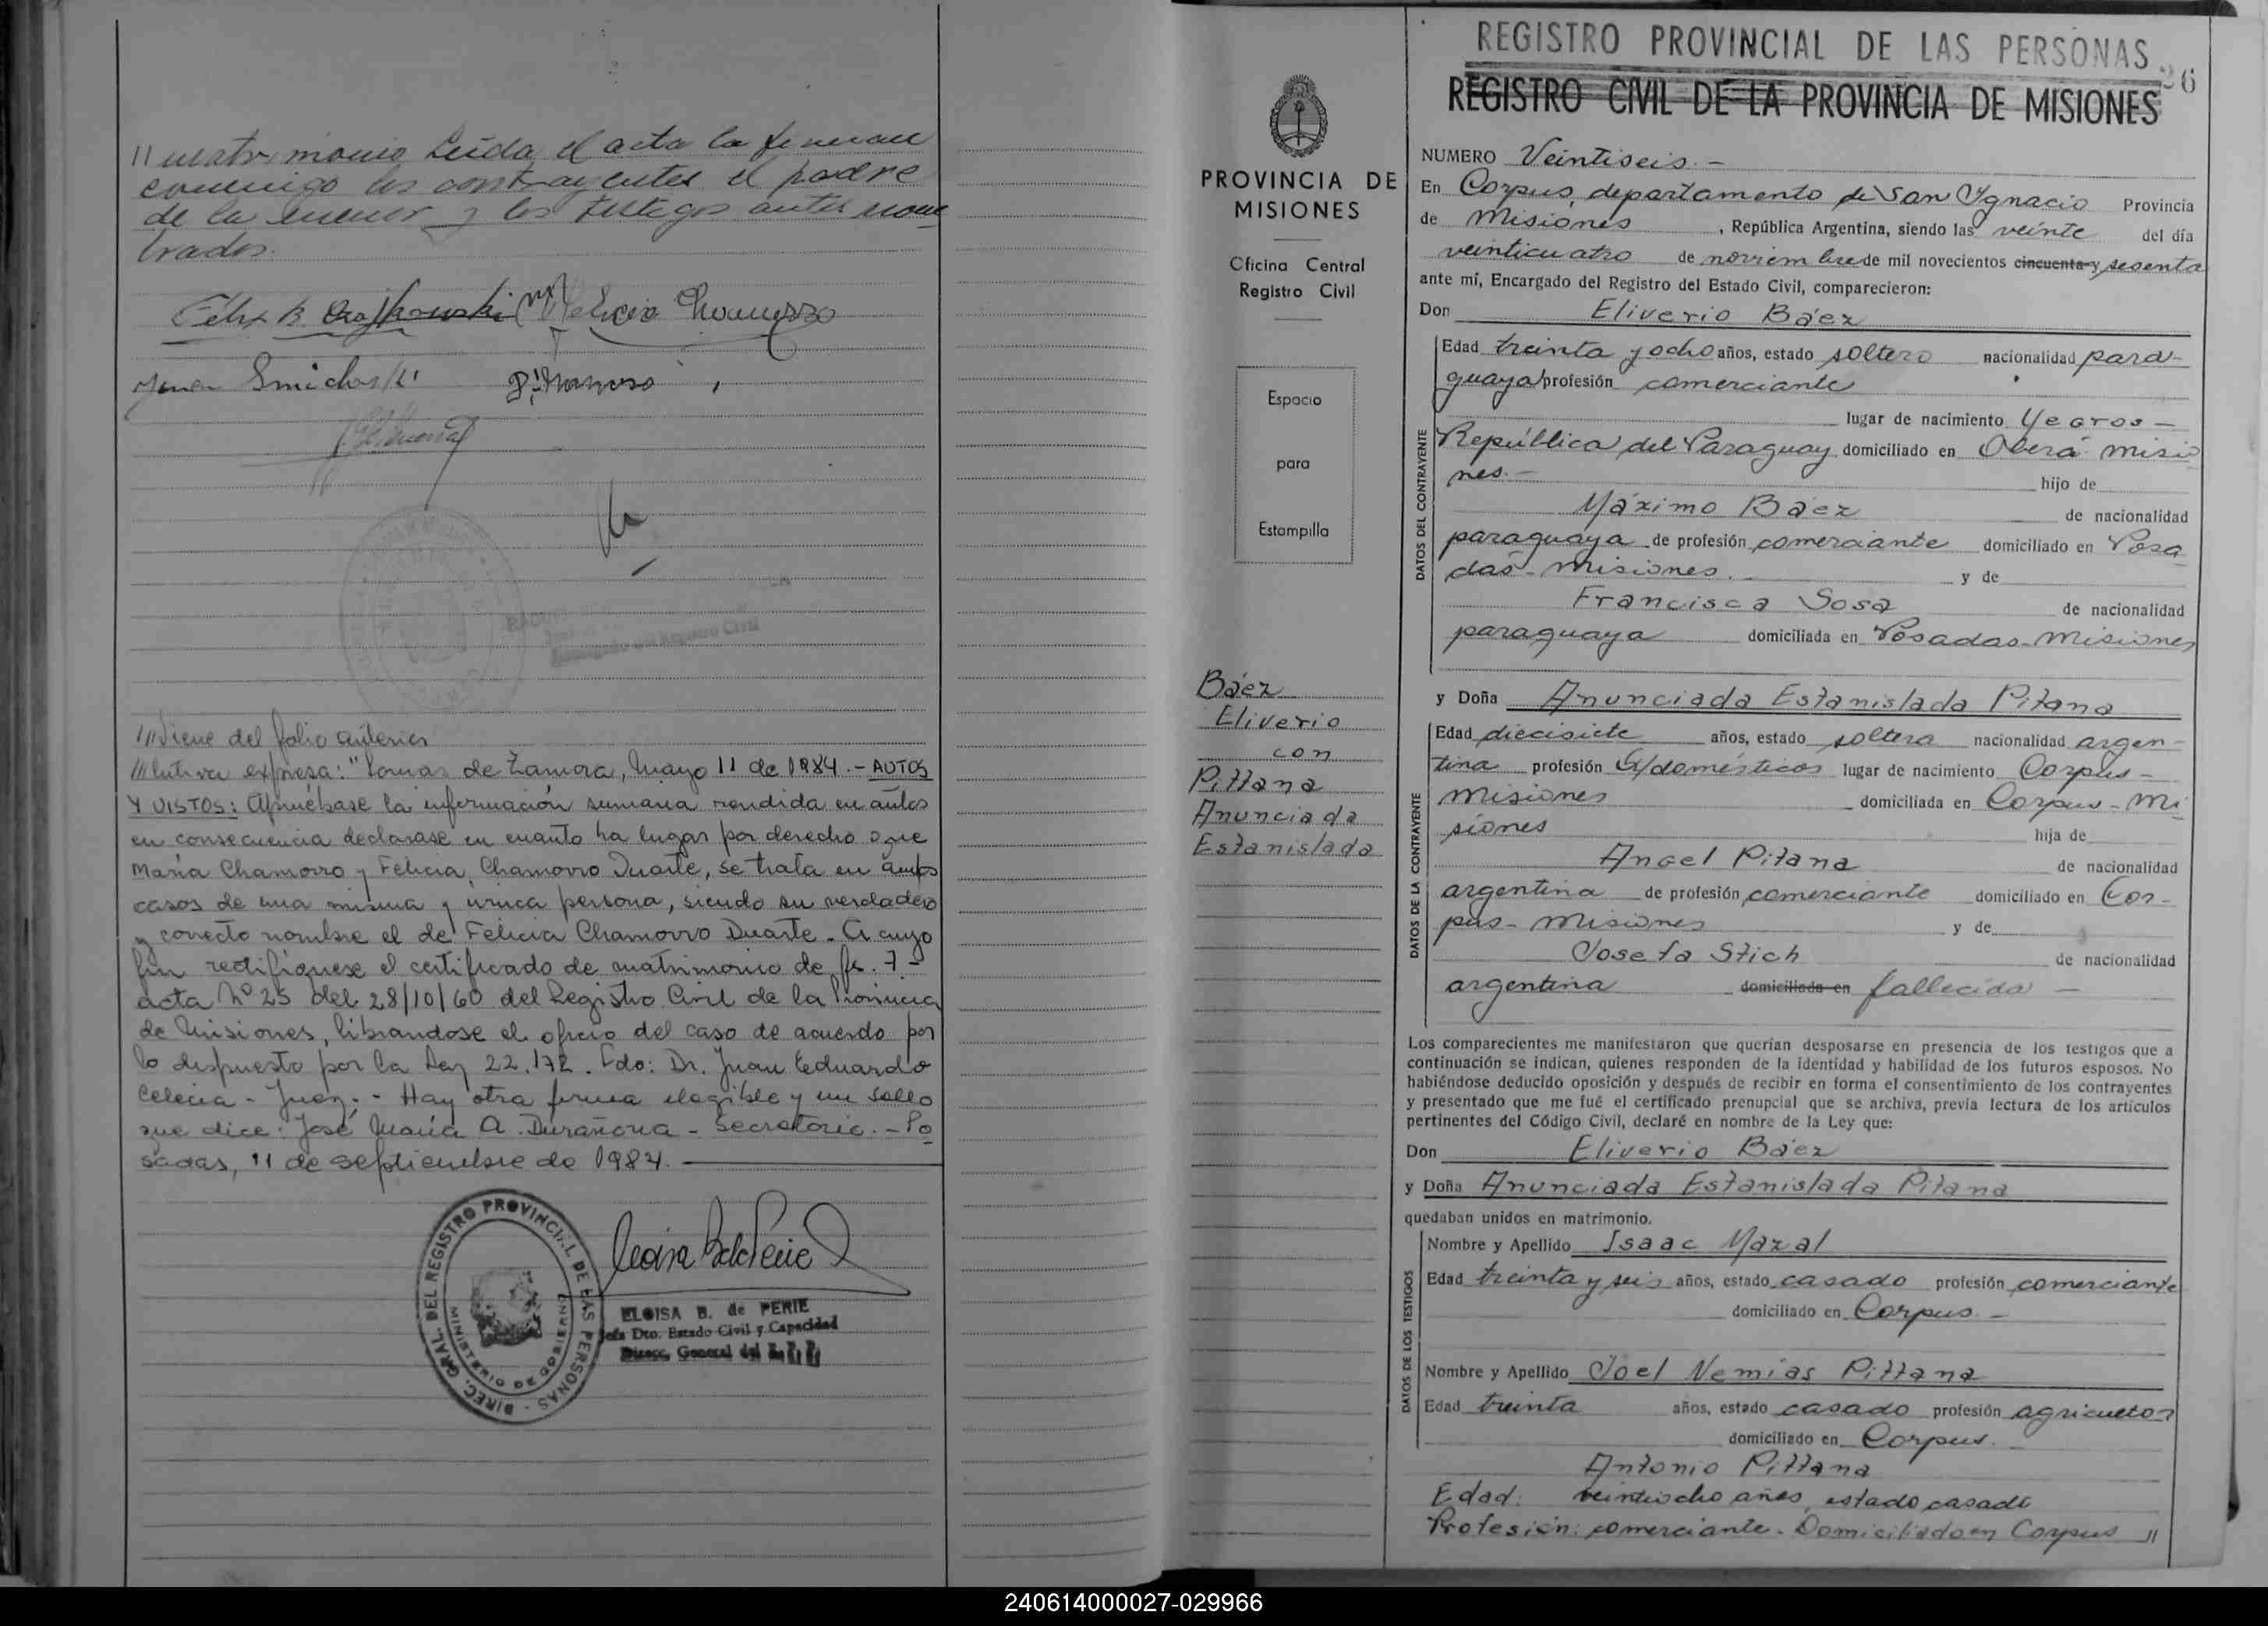 // matrimonio Leida el acta la firman
conmigo los contrayentes el padre
de la menor y los testigos antes nom-
brados.
Felix B.
///Viene del folio anterior
///lutiva expresa: "Lomas de Zamora, Mayo 11 de 1984.- AUTOS
Y VISTOS: Apruébase la información sumaria rendida en autos
en consecuencia declarase en cuanto ha lugar por derecho que
María Chamorro y Felicia Chamorro Duarte, se trata en ambos
casos de una misma y unica persona, siendo su verdadero
y correcto nombre el de Felicia Chamorro Duarte. A cuyo
fin rectifíquese el certificado de matrimonio de fs. 7-
acta Nº 25 del 28/10/60 del Registro Civil de la Provincia
de Misiones, librandose el oficio del caso de acuerdo por
lo dispuesto por la Ley 22.172. Fdo: Dr. Juan Eduardo
Celecia - Juez. - Hay otra firma elegible y un sello
que dice: José María A. Durañona - Secretario. - Po
sadas, 11 de septiembre de 1984.
DIREC. GRAL. DEL REGISTRO PROVINCIAL DE LAS PERSONAS
MINISTERIO DE GOBIERNO
ELOISA B. de PERIE
Jefa Dto. Estado Civil y Capacidad
Direcc. General del
PROVINCIA DE
MISIONES
Oficina Central
Registro Civil
Espacio
para
Estampilla
Báez
Eliverio
con
Pittana
Anunciada
Estanislada
REGISTRO PROVINCIAL DE LAS PERSONAS
26
REGISTRO CIVIL DE LA PROVINCIA DE MISIONES
NUMERO Veintiseis.-
En Corpus, departamento de San Ygnacio Provincia
de Misiones, República Argentina, siendo las veinte del día
veinticuatro de noviembre de mil novecientos cincuenta y sesenta
ante mí, Encargado del Registro del Estado Civil, comparecieron:
Don Eliverio Báez
DATOS DEL CONTRAYENTE
Edad treinta y ocho años, estado soltero nacionalidad para-
guaya profesión comerciante
lugar de nacimiento Yegros-
República del Paraguay domiciliado en Oberá misio
nes.- hijo de
Máximo Báez de nacionalidad
paraguaya de profesión comerciante domiciliado en Posa
das- misiones. y de
Francisca Sosa de nacionalidad
paraguaya domiciliada en Posadas-Misiones
y Doña Anunciada Estanislada Pitana
DATOS DE LA CONTRAYENTE
Edad diecisiete años, estado soltera nacionalidad argen-
tina profesión Q/domésticos lugar de nacimiento Corpus-
Misiones domiciliada en Corpus-Mi
siones hija de
Angel Pitana de nacionalidad
argentina de profesión comerciante domiciliado en Cor-
pus- Misiones y de
Josefa Stich de nacionalidad
argentina domiciliada en fallecida -
Los comparecientes me manifestaron que querían desposarse en presencia de los testigos que a
continuación se indican, quienes responden de la identidad y habilidad de los futuros esposos. No
habiéndose deducido oposición y después de recibir en forma el consentimiento de los contrayentes
y presentado que me fué el certificado prenupcial que se archiva, previa lectura de los artículos
pertinentes del Código Civil, declaré en nombre de la Ley que:
Don Eliverio Báez
y Doña Anunciada Estanislada Pitana
quedaban unidos en matrimonio.
DATOS DE LOS TESTIGOS
Nombre y Apellido Isaac Mazal
Edad treinta y seis años, estado casado profesión comerciante
domiciliado en Corpus.-
Nombre y Apellido Joel Nemias Pittana
Edad treinta años, estado casado profesión agricultor
domiciliado en Corpus.
Antonio Pittana
Edad: veintiocho años, estado casado
Profesión: comerciante. Domiciliado en Corpus //
240614000027-029966